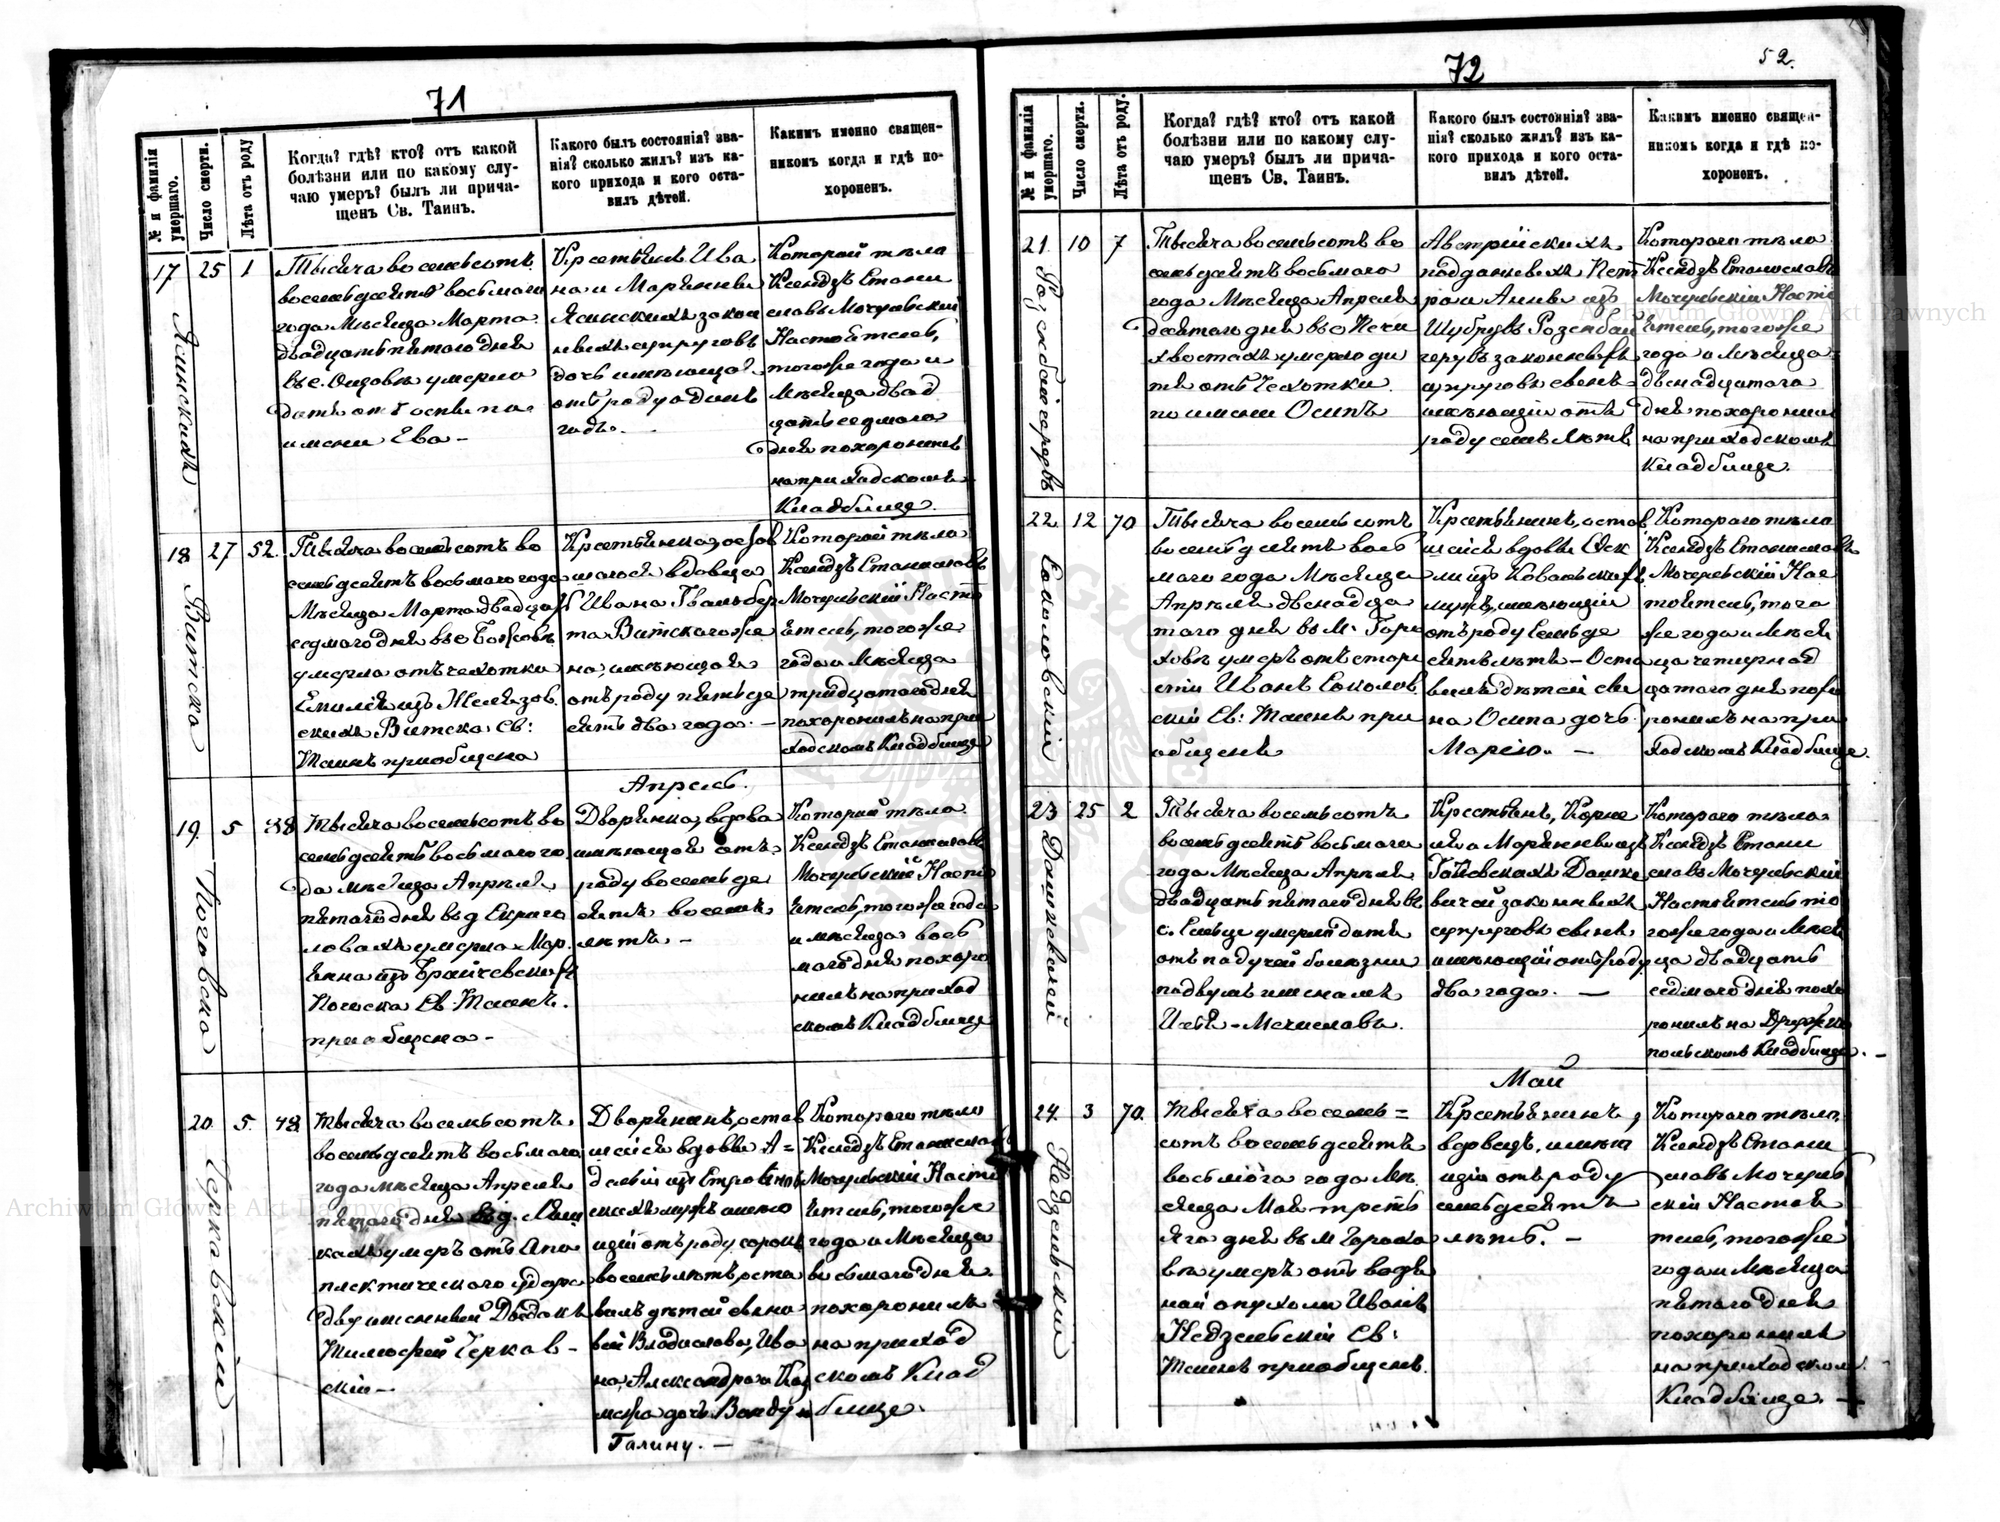 71
№ и фамилія умершаго.
Число смерти.
Лѣта отъ роду
Когда? гдѣ? кто? отъ какой
болѣзни или по какому слу-
чаю умеръ? былъ ли прича-
щенъ Св. Таинъ.
Какого былъ состоянія? зва-
нія? сколько жилъ? изъ ка-
кого прихода и кого оста-
вилъ дѣтей.
Какимъ именно священ-
никомъ когда и гдѣ по-
хороненъ.
17
25
1
Ясинскихъ
Тысяча восемьсотъ
восемьдесятъ восьмаго
года Мѣсяца Марта
двадцать пятаго дня
въ с. умерло
дитя отъ оспы по
имени Ева –
Крестьянъ Ива
на и Маріянны
Ясинскихъ закон
ныхъ супруговъ
дочь имѣющая
отъ роду одинъ
годъ. –
Которой тѣло
Ксендзъ Стани
славъ Мочульскій
Настоятель,
тогоже года и
Мѣсяца двад
цать седмаго
дня похоронилъ
на приходскомъ
Кладбищѣ.
18
27
52
Витска
Тысяча восемьсотъ во
семьдесятъ восьмаго года
Мѣсяца Марта двадцать
седмаго дня въ с.
умерла отъ чахотки
Емилія изъ
скихъ Витска Св:
Таинъ приобщена
Крестьянка, остав
шагося вдовца
Ивана
та Витскаго же
на, имѣющая
отъ роду пятьде
сятъ два года. –
Которой тѣло
Ксендзъ Станиславъ
Мочульскій Насто
ятель, тогоже
года и Мѣсяца
тридцатаго дня
похоронилъ на при
ходскомъ Кладбищѣ
Апрель.
19
5
88
Ногоvска
Тысяча восемьсотъ во
семьдесятъ восьмаго го
да мѣсяца Апрѣля
пятаго дня въ д.
ловахъ умерла Мар
янна изъ
Св. Таинъ
приобщена –
Дворянка, вдова
имѣющая отъ
роду восемьде
сятъ восемь
лѣтъ –
Которой тѣло
Ксендзъ Станиславъ
Мочульскій Насто
ятель, тогоже года
и мѣсяца вось
маго дня похоро
нилъ на приход
скомъ Кладбищѣ
20
5
48
Черкавскій
Тысяча восемьсотъ
восемьдесятъ восьмаго
года мѣсяца Апреля
пятаго дня въ д.
кахъ умеръ отъ Апо
плектическаго удара
двуименный Богданъ
Тимофей Черкав-
скій –
Дворянинъ, остав
шейся вдовы А=
скихъ мужъ имѣю
щій отъ роду сорокъ
восемь лѣтъ, оста
вилъ дѣтей сыно
вей Владислава, Ива
на, Александра и
дочь Ванду и
Галину. –
Котораго тѣло
Ксендзъ Станиславъ
Мочульскій Насто
ятель, тогоже
года и Мѣсяца
восьмаго дня
похоронилъ
на приход
скомъ Клад
бищѣ.
72
52.
№ и фамилія умершаго.
Число смерти.
Лѣта отъ роду.
Когда? гдѣ? кто? отъ какой
болѣзни или по какому слу-
чаю умеръ? былъ ли прича-
щенъ Св. Таинъ.
Какого былъ состоянія? зва-
нія? сколько жилъ? изъ ка-
кого прихода и кого оста-
вилъ дѣтей.
Какимъ именно священ-
никомъ когда и гдѣ по-
хороненъ.
21
10
7
Розембайгеръ
Тысяча восемьсотъ во
семьдесятъ восьмаго
года Мѣсяца Апреля
десятаго дня въ с. Печи
хвостахъ умерло ди
тя отъ Чахотки
по имени Осипъ
Австрійскихъ
подданныхъ Пет
ра и Анны изъ
геровъ законныхъ
супруговъ сынъ
имѣющій отъ
роду семь лѣтъ
Котораго тѣло
Ксендзъ Станиславъ
Мочульскій Насто
ятель, тогоже
года и Мѣсяца
двенадцатаго
дня похоронилъ
на приходскомъ
Кладбищѣ.
22
12
70
Соколовскій
Тысяча восемьсотъ
восемьдесятъ вось
маго года Мѣсяца
Апрѣля двенадца
таго дня въ М. Горо
ховѣ умеръ отъ старо
сти Иванъ Соколов
скій Св: Таинъ при
общенъ
Крестьянинъ, остав
шейся вдовы
изъ Ковальскихъ
мужъ, имѣющій
отъ роду семьде
сятъ лѣтъ – Оста
вилъ дѣтей сы
на Осипа дочь
Марію. –
Котораго тѣло
Ксендзъ Станиславъ
Мочульскій Нас
тоятель, того
же года и Мѣся
ца четырнад
цатаго дня похо
ронилъ на при
ходскомъ Кладбищѣ.
23
25
2
Дашкевичей
Тысяча восемьсотъ
восемьдесятъ восьмаго
года Мѣсяца Апрѣля
двадцать пятаго дня въ
с. умерло дитя
отъ падучей болѣзни
подвумъ именамъ
Мечиславъ.
Крестьянъ, Корне
лія и Маріянны изъ
Дашке
вичей законныхъ
супруговъ сынъ
имѣющій отъ роду
два года. –
Котораго тѣло
Ксендзъ Стани
славъ Мочульскій
Настоятель то
гоже года и Мѣся
ца двадцать
седмаго дня похо
ронилъ на Дружко
польскомъ Кладбищѣ. –
Май
24
3
70
Недзельскій
Тысяча восемь=
сотъ восемьдесятъ
восьмого года Мѣ
сяца Мая треть
яго дня въ М Горохо
вѣ умеръ отъ водя
ной опухоли Иванъ
Недзельскій Св:
Таинъ приобщенъ.
Крестьянинъ,
вдовецъ, имѣю
щій отъ роду
семьдесятъ
лѣтъ. –
Котораго тѣло
Ксендзъ Стани
славъ Мочуль
скій Настоя
тель, тогоже
года и Мѣсяца
пятаго дня
похоронилъ
на приходскомъ
Кладбищѣ. –
Archiwum Główne Akt Dawnych
Archiwum Główne Akt Dawnych